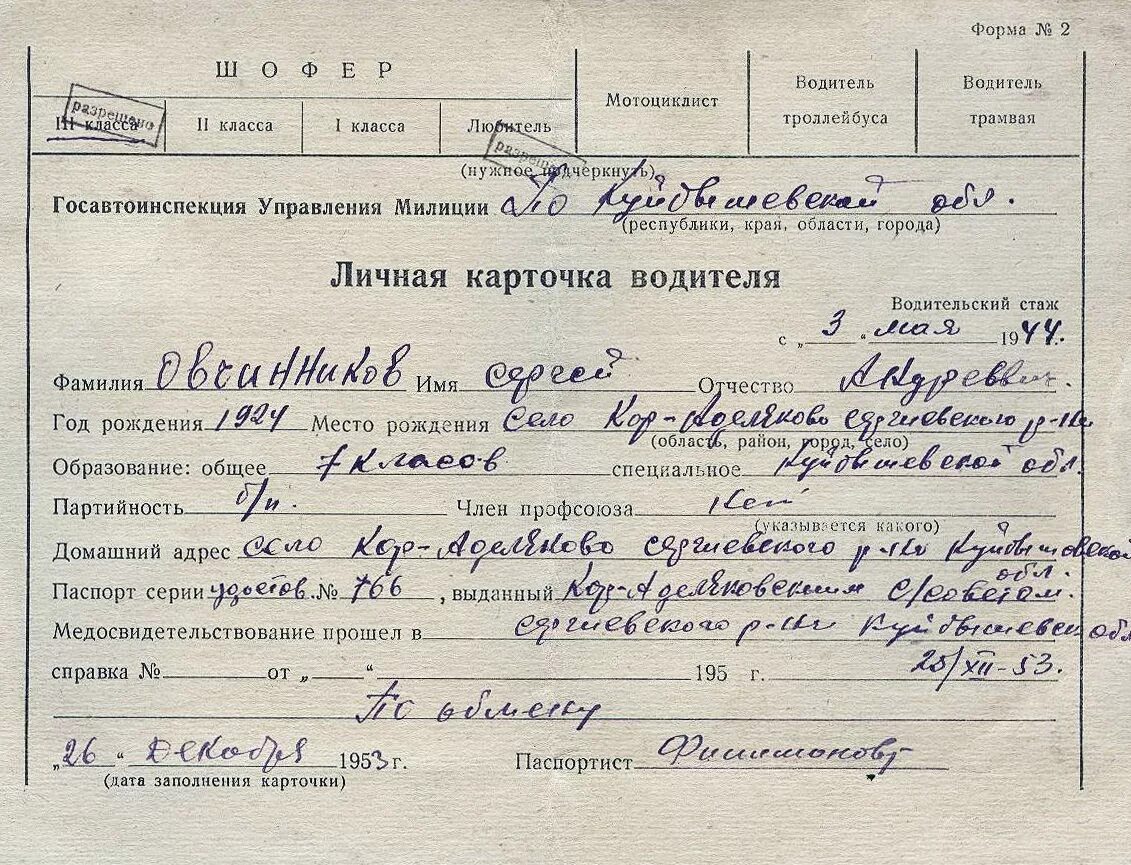 Форма № 2
ШОФЕР
Мотоциклист
Водитель троллейбуса
Водитель трамвая
III класса разрешено
II класса
I класса
Любитель
разрешено
(нужное подчеркнуть)
Госавтоинспекция Управления Милиции По Куйбышевской обл.
(республики, края, области, города)
Личная карточка водителя
Водительский стаж
с „ 3 “ мая 1944.
Фамилия Овчинников Имя Сергей Отчество
Год рождения 1924 Место рождения село Кор-Аделяково сергиевского р-на
(область, район, город, село)
Образование: общее 7 класов специальное Куйбышевской обл.
Партийность б/п. Член профсоюза нет
(указывается какого)
Домашний адрес село Кор-Аделяково сергиевского р-на Куйбышевской обл.
Паспорт серии удостов. № 766, выданный Кор-Аделяковским с/советам.
Медосвидетельствование прошел в сергиевского р-на Куйбышевск обл
справка № от „ “ 195 г. 25/XII-53.
По обмену
„26“ Декабря 1953 г. Паспортист
(дата заполнения карточки)